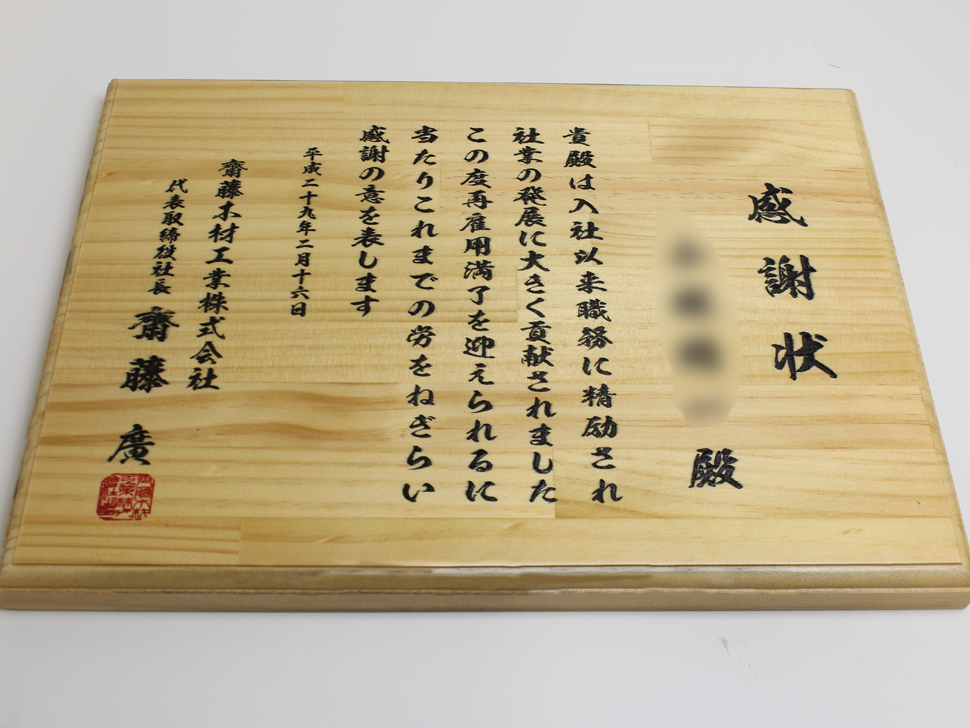 感謝状
殿
貴殿は入社以来職務に精励され
社業の発展に大きく貢献されました
この度再雇用満了を迎えられるに
当たりこれまでの労をねぎらい
感謝の意を表します
平成二十九年二月十六日
齋藤木材工業株式会社
代表取締役社長 齋藤 廣